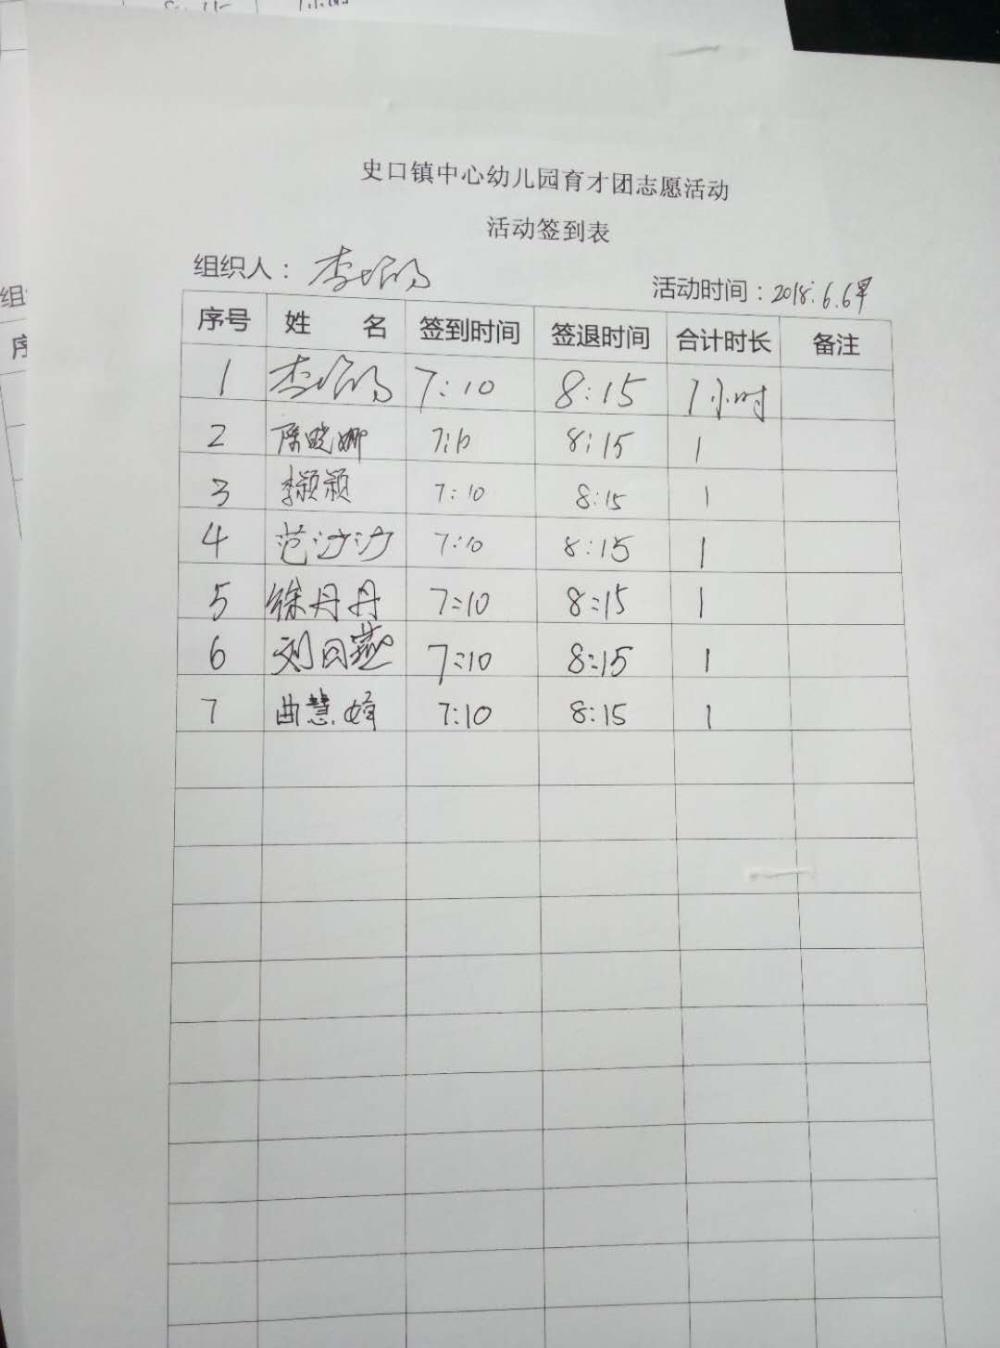 史口镇中心幼儿园育才团志愿活动
活动签到表
组织人： 李 活动时间：2018.6.6早
序号 姓 名 签到时间 签退时间 合计时长 备注
1 李 7:10 8:15 1小时
2 陈晓娜 7:10 8:15 1
3 李颖颖 7:10 8:15 1
4 范沙沙 7:10 8:15 1
5 徐丹丹 7:10 8:15 1
6 刘日燕 7:10 8:15 1
7 曲慧 7:10 8:15 1
组
序